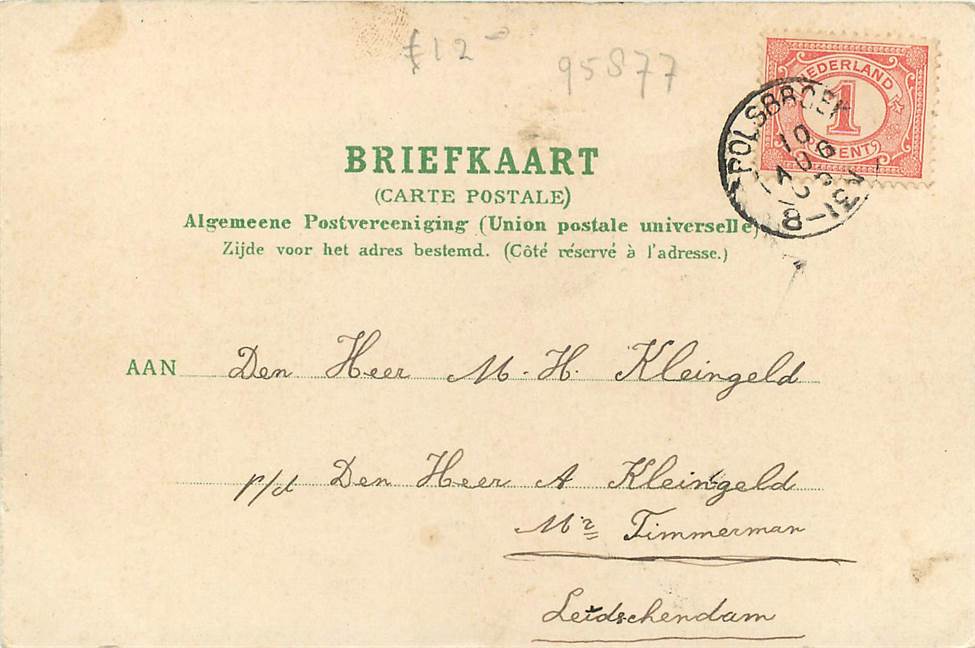 £12-
95877
NEDERLAND
1
CENT
POLSBROEK
BRIEFKAART
(CARTE POSTALE)
Algemeene Postvereeniging (Union postale universelle)
Zijde voor het adres bestemd. (Côté réservé à l'adresse.)
AAN Den Heer M. H. Kleingeld
p/d Den Heer A Kleingeld
Mr Timmerman
Leidschendam